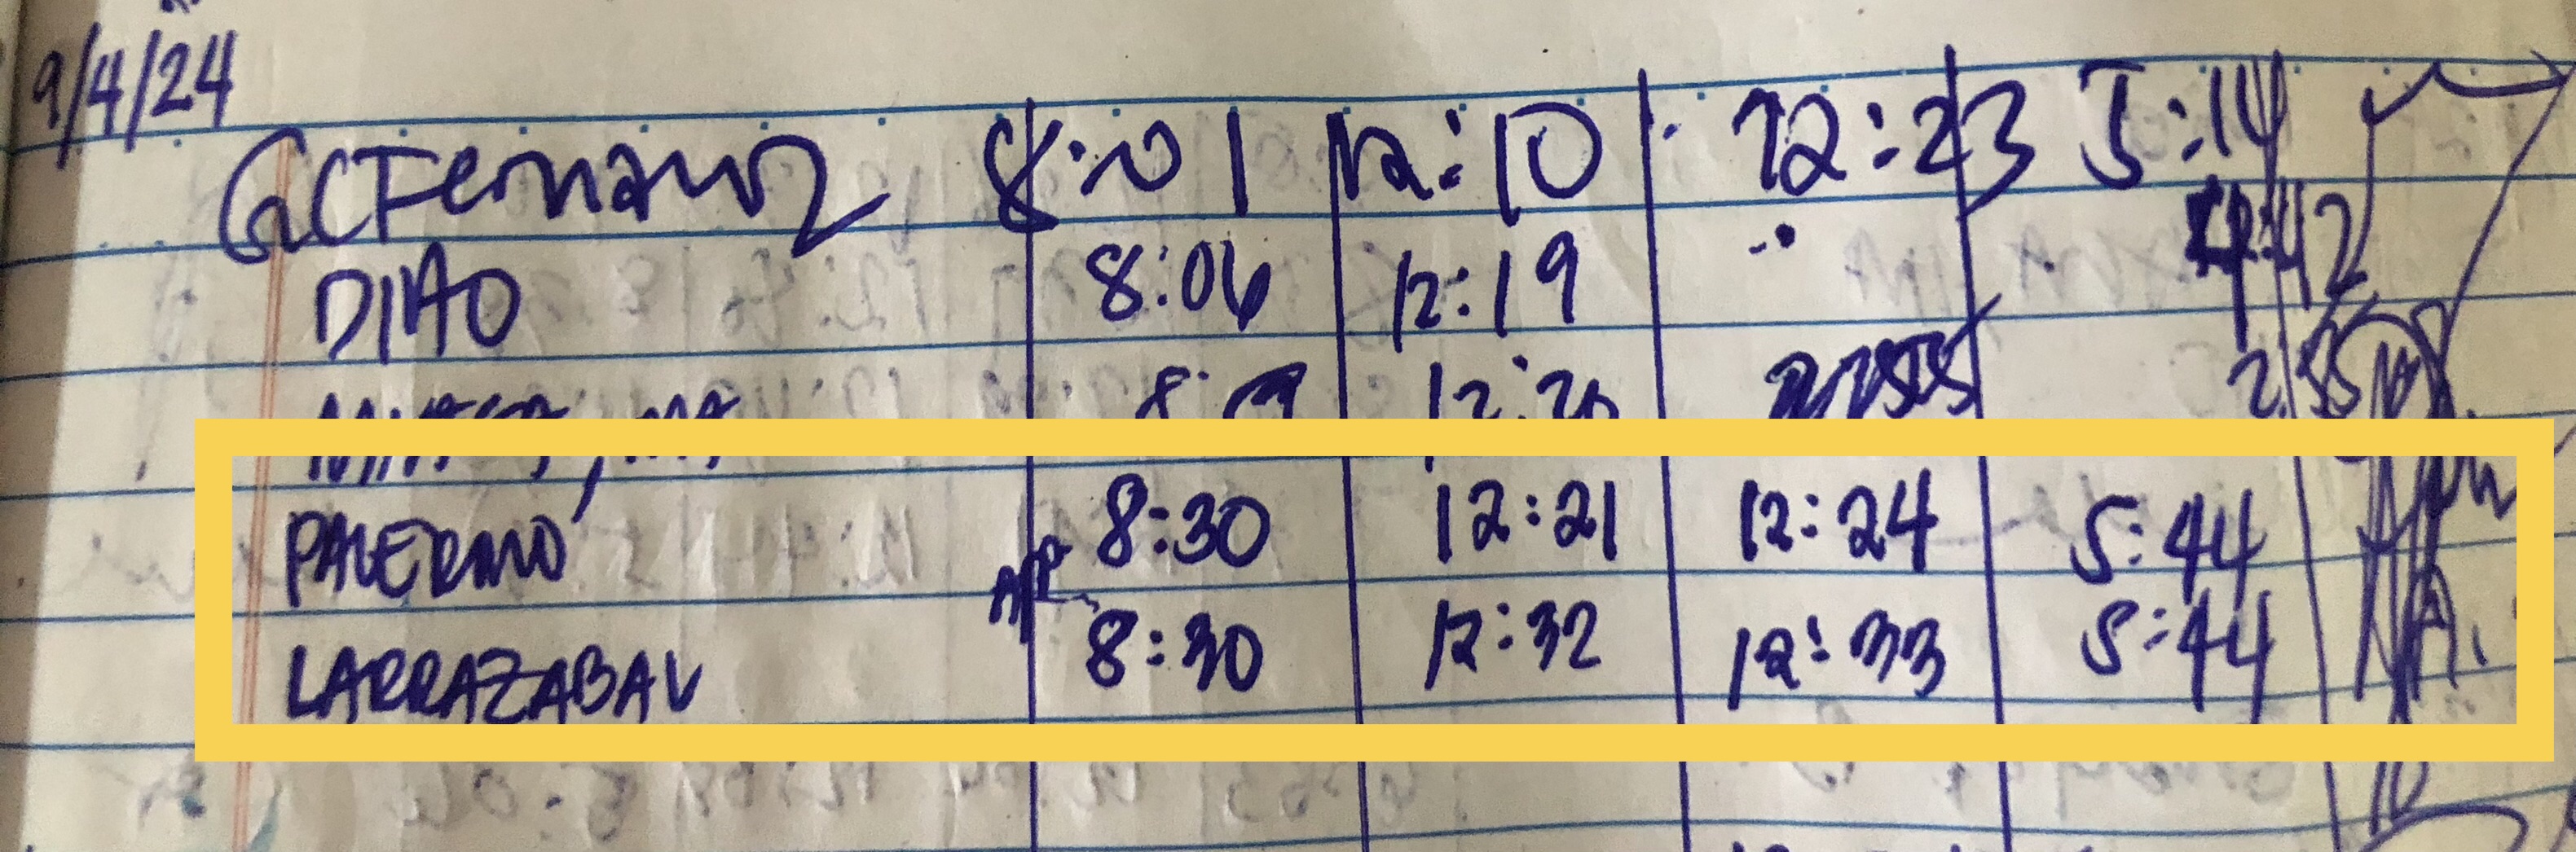 9/4/24
GCFernandz 8:01 12:10 12:23 5:14
DIAO 8:06 12:19 4:42
12:20 2:55
PALERMO 8:30 12:21 12:24 5:44
App
LARRAZABAL 8:30 12:32 12:33 5:44